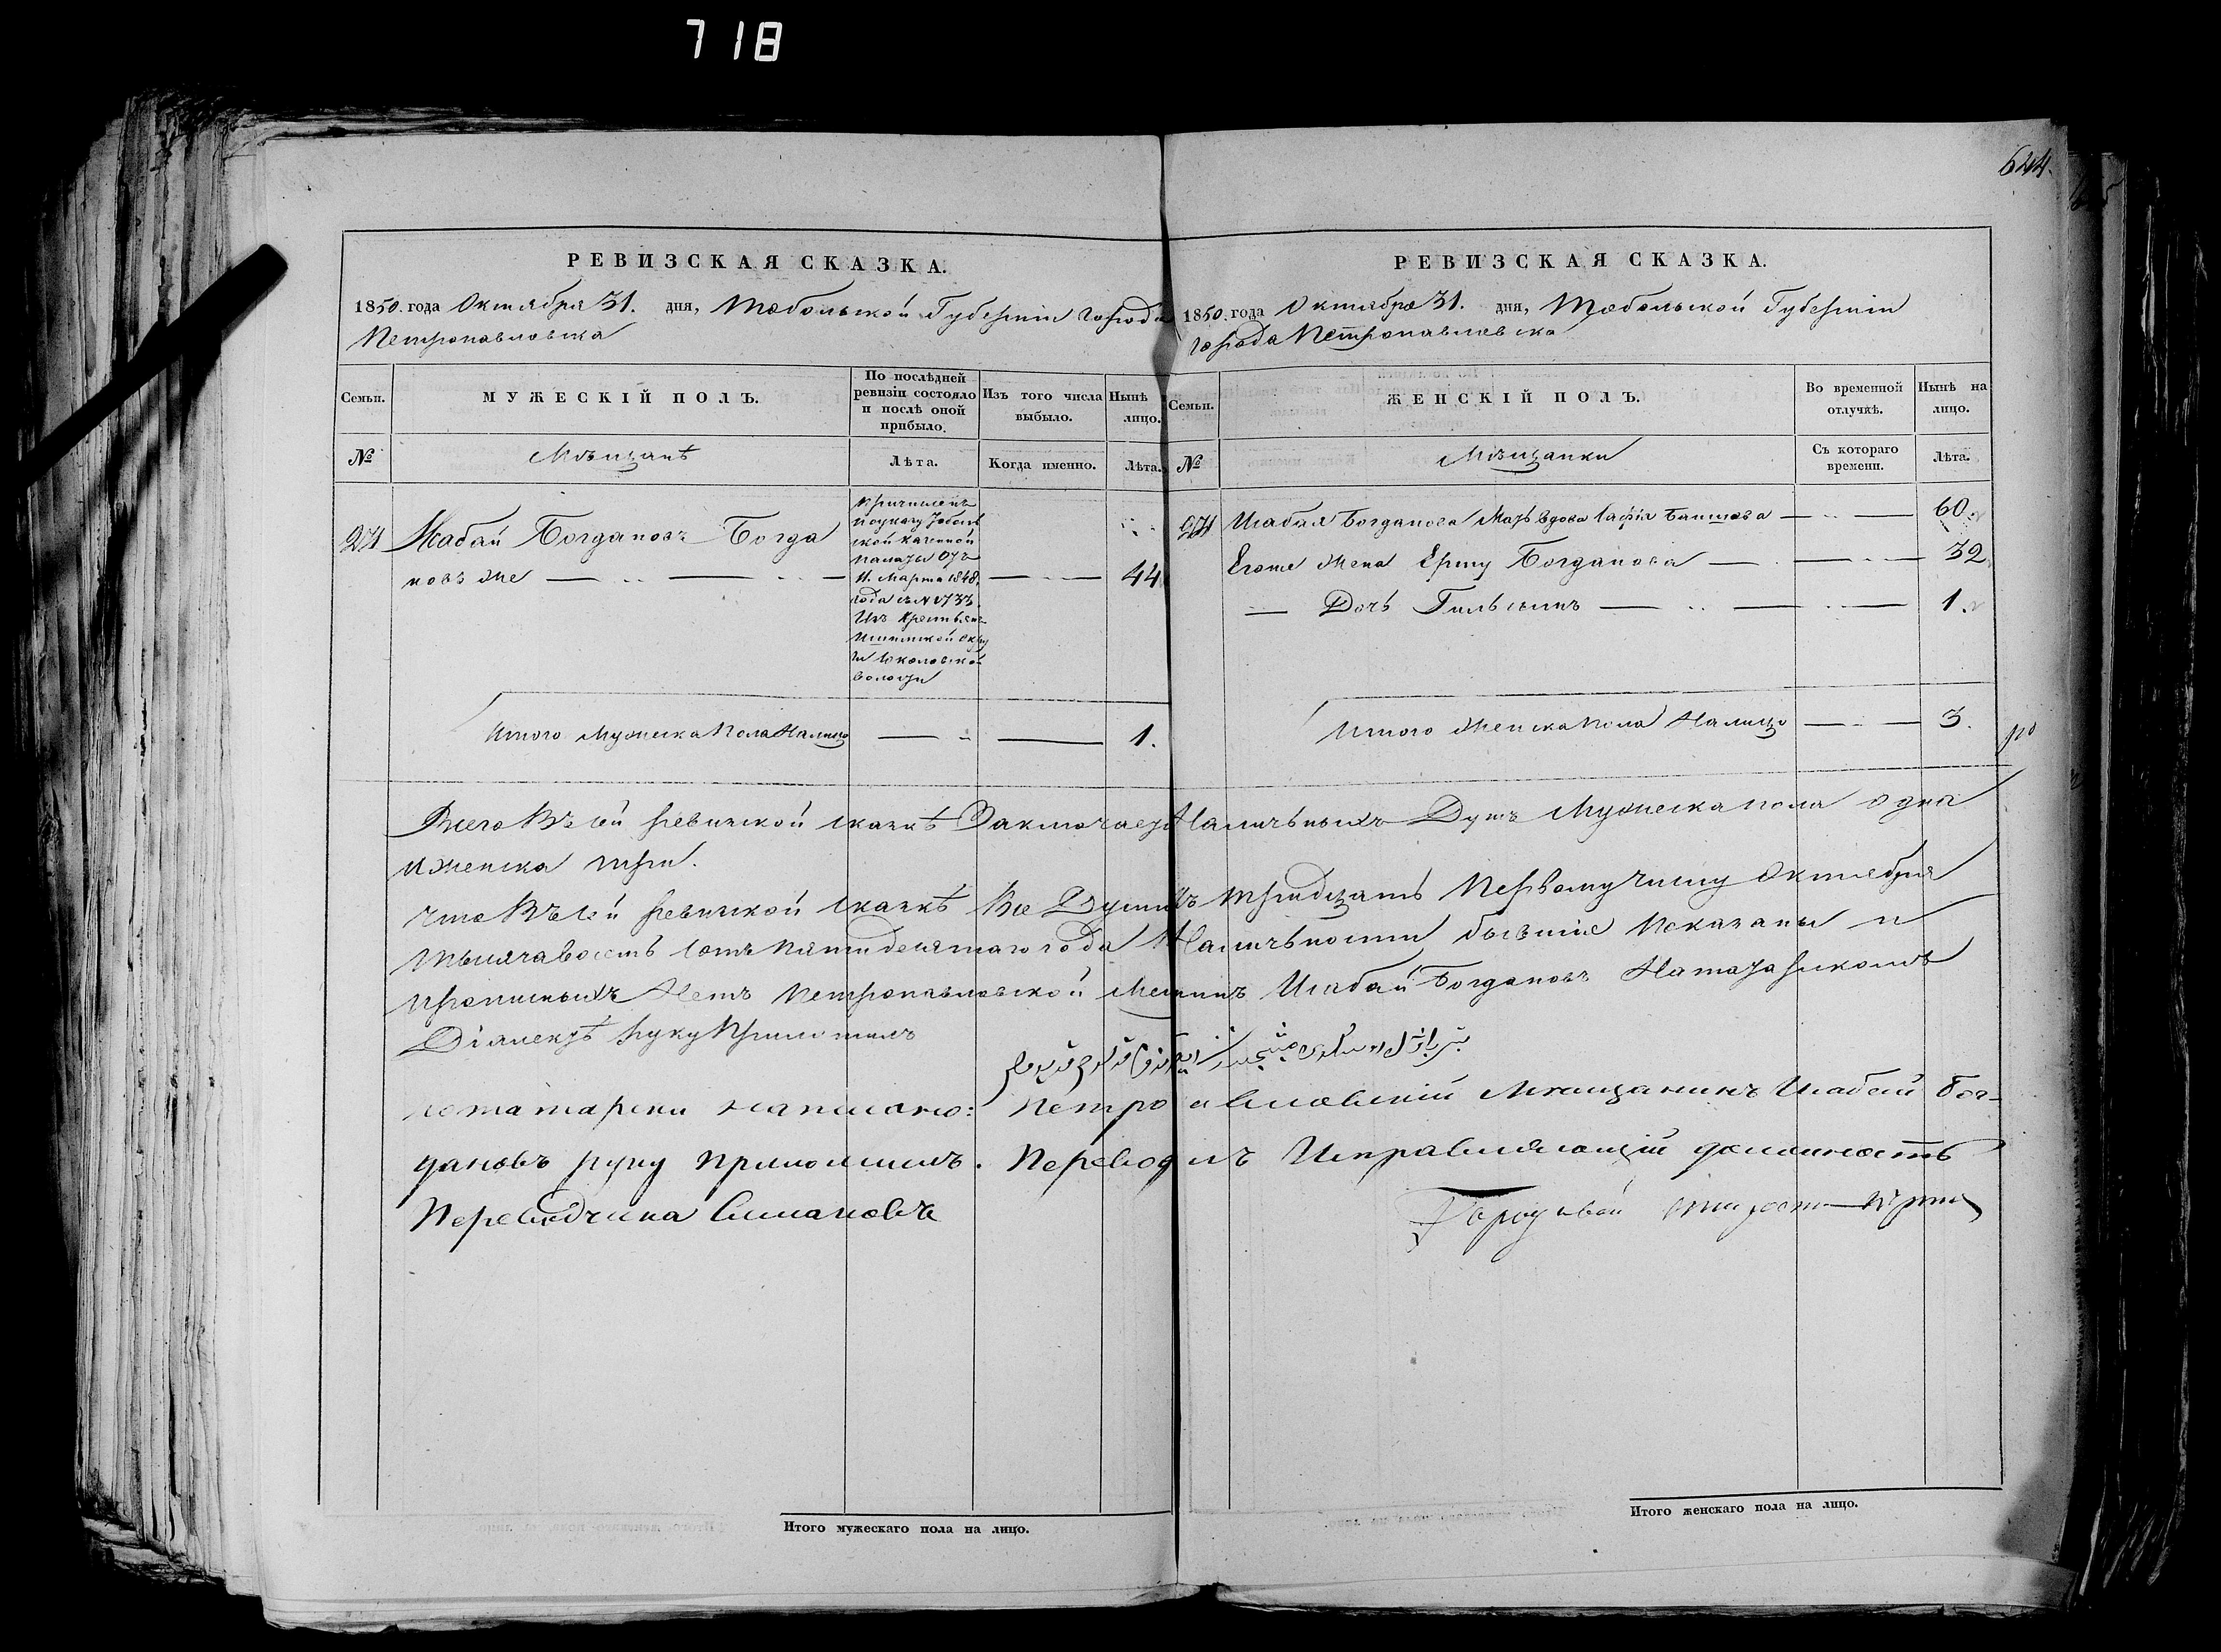 718
644.
РЕВИЗСКАЯ СКАЗКА.
1850. года Октября 31. дня, Тобольской Губернiи города
Петропавловска
Семьи.
МУЖЕСКІЙ ПОЛЪ.
По послѣдней ревизіи состояло и послѣ оной прибыло.
Изъ того числа выбыло.
Нынѣ лицо.
№
Мѣщанѣ
Лѣта.
Когда именно.
Лѣта.
Богдановъ Богда
новъ же
44
Причисленъ
поуказу Тоболь
ской казенной
палаты отъ
11. Марта 1848.
года за № 1733.
Изъ крестьянъ
Ишимской окру
ги Соколовской
волости
Итого мужеска пола налицо
1.
РЕВИЗСКАЯ СКАЗКА.
1850. года Октября 31. дня, Тобольской Губернiи
города Петропавловска
Семьи.
ЖЕНСКІЙ ПОЛЪ.
Во временной отлучкѣ.
Нынѣ на лицо.
№
Мѣщанки
Съ котораго времени.
Лѣта.
Богданова Мать вдова 60.
Егоже жена Богданова 32
Дочь 1.
Итого женска пола налицо 3.
Всего Въ сей ревизской сказкѣ Заключается Наличьныхъ Душъ Мужеска пола одна
и женска три.
что Въ сей ревизской сказкѣ Все Души Къ тридцать Первому числу Октября
тысяча восемь сотъ пятидесятаго года Наличьности бывшiе показаны и
прописныхъ Нетъ Петропавловской Богдановъ На татарскомъ
Дiялектѣ руку Приложилъ
потатарски написано: Петропавловскiй Мѣщанинъ Бог-
дановъ руку приложилъ. Переводилъ Исправляющiй должность
Переводчика
Городовой
Итого мужескаго пола на лицо.
Итого женскаго пола на лицо.